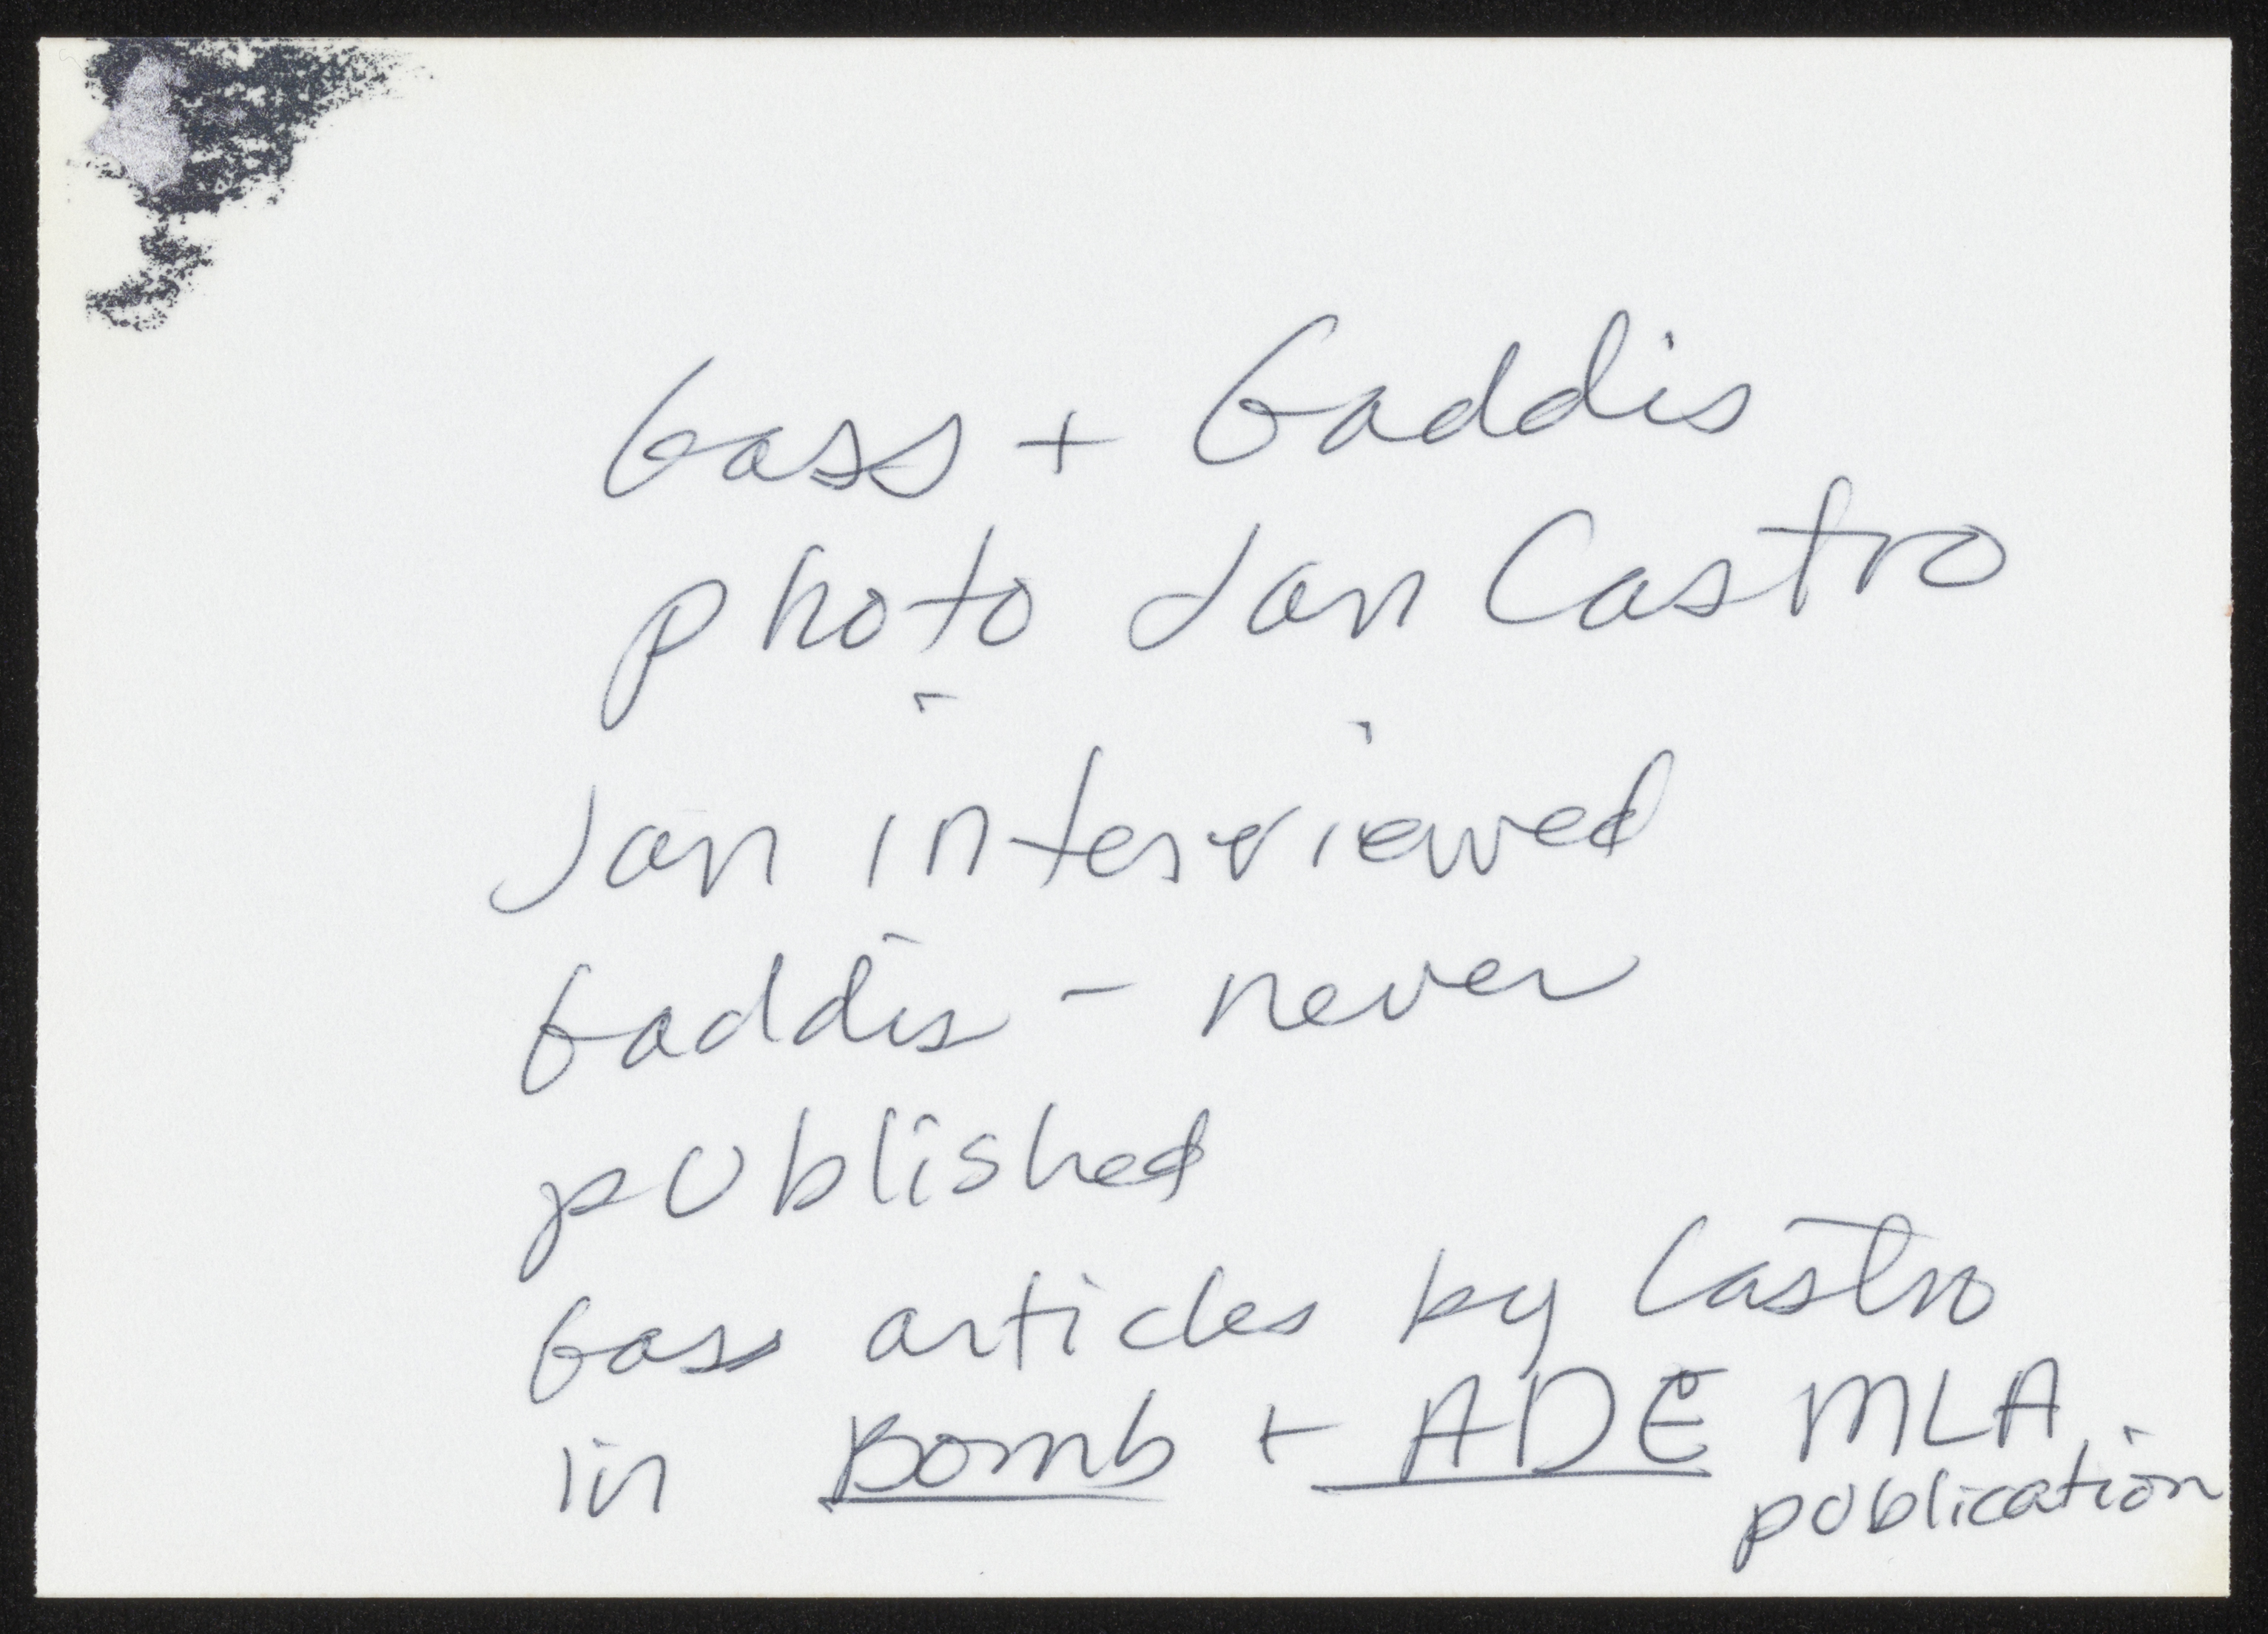 Gass + Gaddis
photo Jan Castro
Jan interviewed
Gaddis - never
published
Gass articles by Castro
in Bomb + ADE MLA
publication